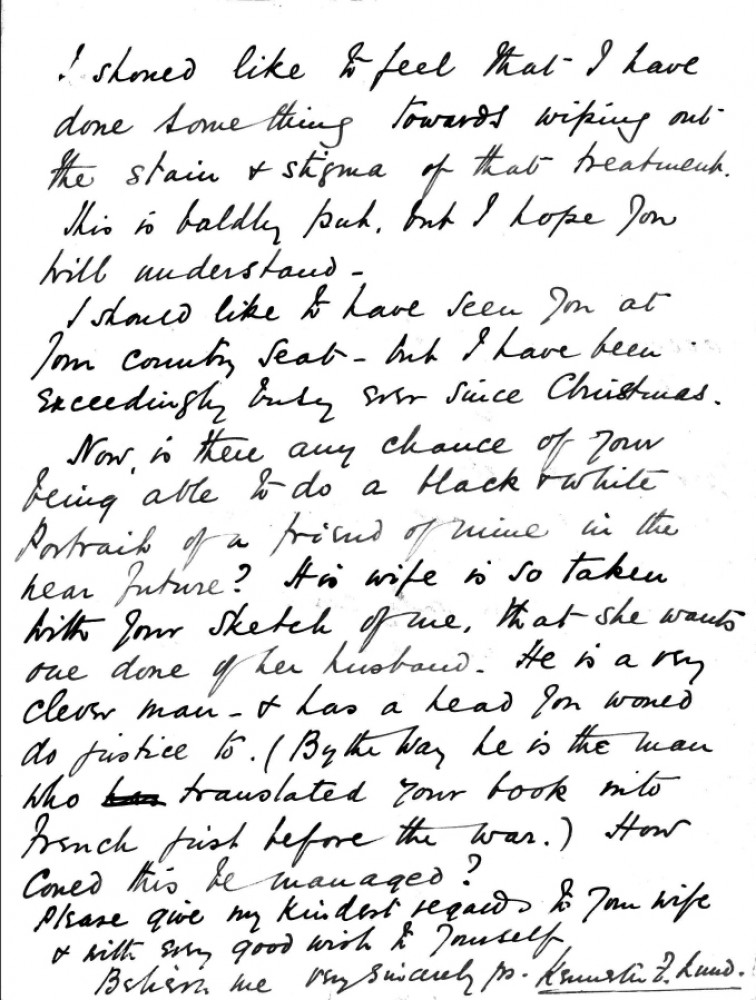 I should like to feel that I have
done something towards wiping out
the stain & stigma of that treatment.
This is baldly put, but I hope you
will understand -
I should like to have seen you at
your country seat - but I have been
exceedingly busy ever since Christmas.
Now, is there any chance of your
being able to do a black & white
Portrait of a friend of mine in the
near future? His wife is so taken
with your sketch of me, that she wants
one done of her husband. He is a very
clever man - & has a head you would
do justice to. (By the way he is the man
who translated your book into
French just before the war.) How
could this be managed?
Please give my kindest regards to your wife
& with every good wish to yourself
Believe me very sincerely yrs. Kenneth F. Lund.